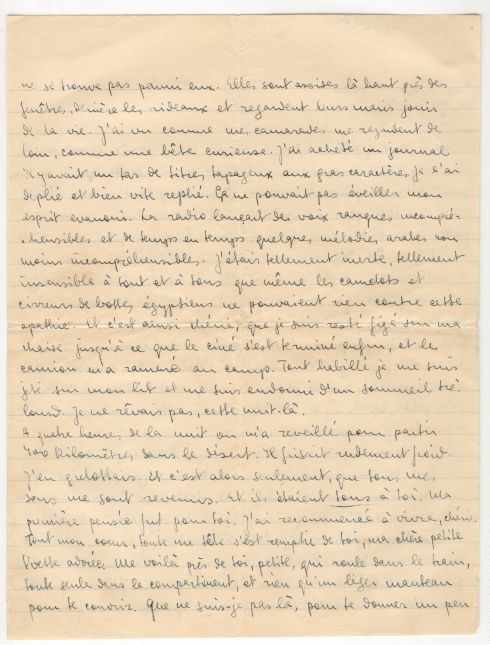 ne se trouve pas parmi eux. Elles sont assises là haut près des
fenêtres, derrière les rideaux et regardent leurs maris jouir
de la vie. J'ai vu comme mes camarades me regardent de
loin, comme une bête curieuse. J'ai acheté un journal
Il y avait un tas de titres tapageux aux gras caractères, je l'ai
déplié et bien vite replié. Ça ne pouvait pas éveiller mon
esprit evanoui. La radio lançait des voix rauques incompré-
hensibles et de temps en temps quelques mélodies arabes non
moins incompréhensibles. J'étais tellement inerte, tellement
insensible à tout et à tous que même les camelots et
cireurs de bottes égyptiens ne pouvaient rien contre cette
apathie. Et c'est ainsi chérie, que je suis resté figé sur ma
chaise jusqu'à ce que le ciné s'est terminé enfin, et le
camion m'a ramené au camp. Tout habillé je me suis
jeté sur mon lit et me suis endormi d'un sommeil très
lourd. Je ne rêvais pas, cette nuit-là.
A quatre heures de la nuit on m'a reveillé pour partir
400 kilomètres dans le désert. Il faisait rudement froid.
J'en grelottais. Et c'est alors seulement, que tous mes
sens me sont revenus. Et ils étaient tous à toi. Ma
première pensée fut pour toi. J'ai recommencé à vivre, chérie.
Tout mon coeur, toute ma tête s'est remplie de toi, ma chère petite
Yvette adorée. Me voilà près de toi, petite, qui roule dans le train,
toute seule dans le compartiment, et rien qu'un léger manteau
pour te couvrir. Que ne suis-je pas là, pour te donner un peu